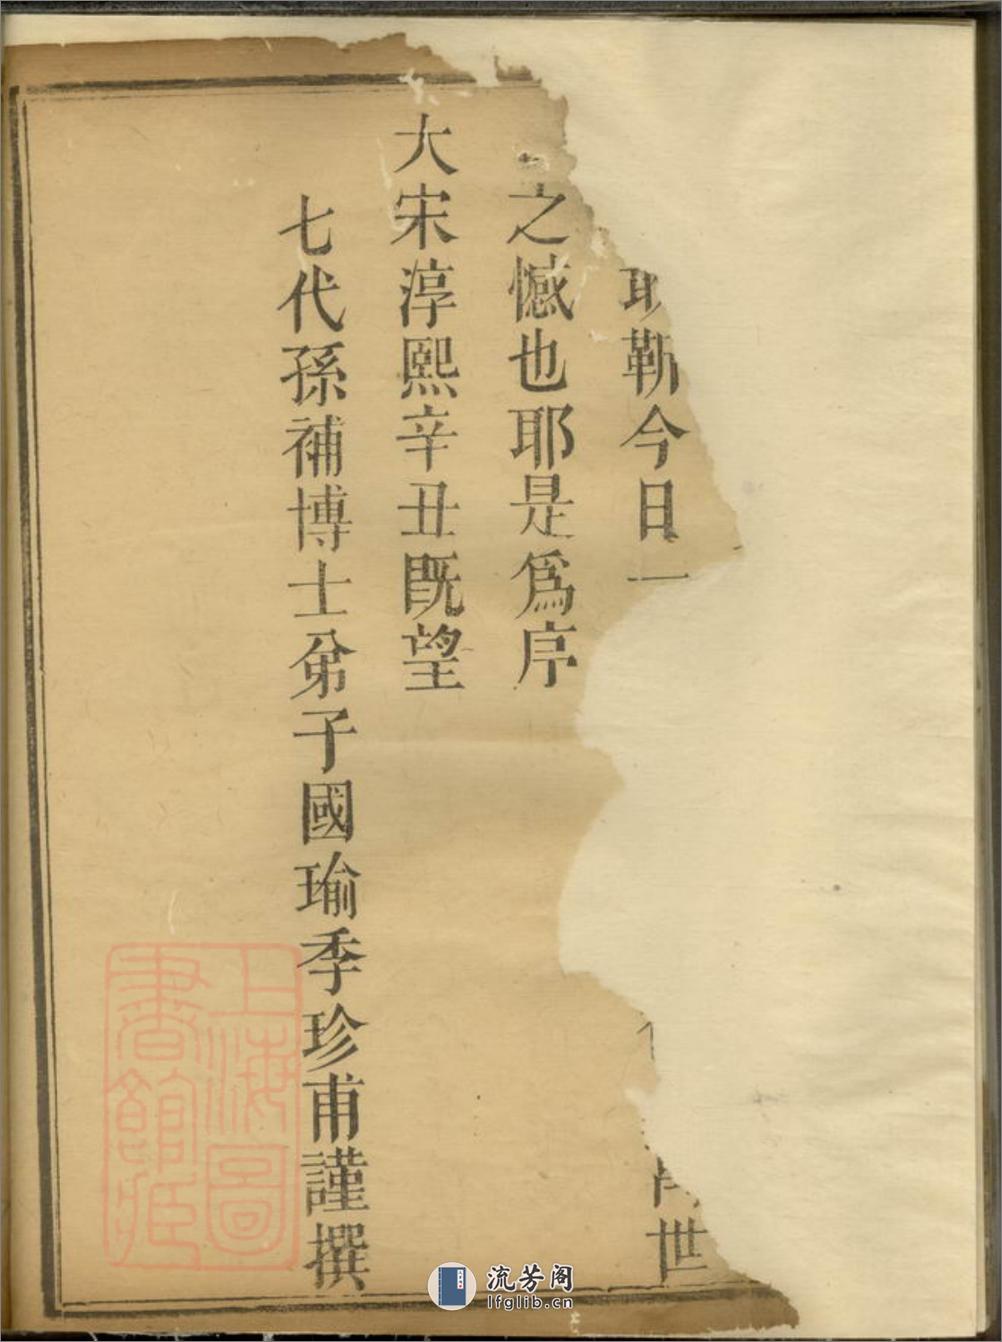 耶靳今日一
萬世
之憾也耶是為序
大宋淳熙辛丑既望
七代孫補博士弟子國瑜季珍甫謹撰
上海圖
書館藏
流芳阁
lfglib.cn